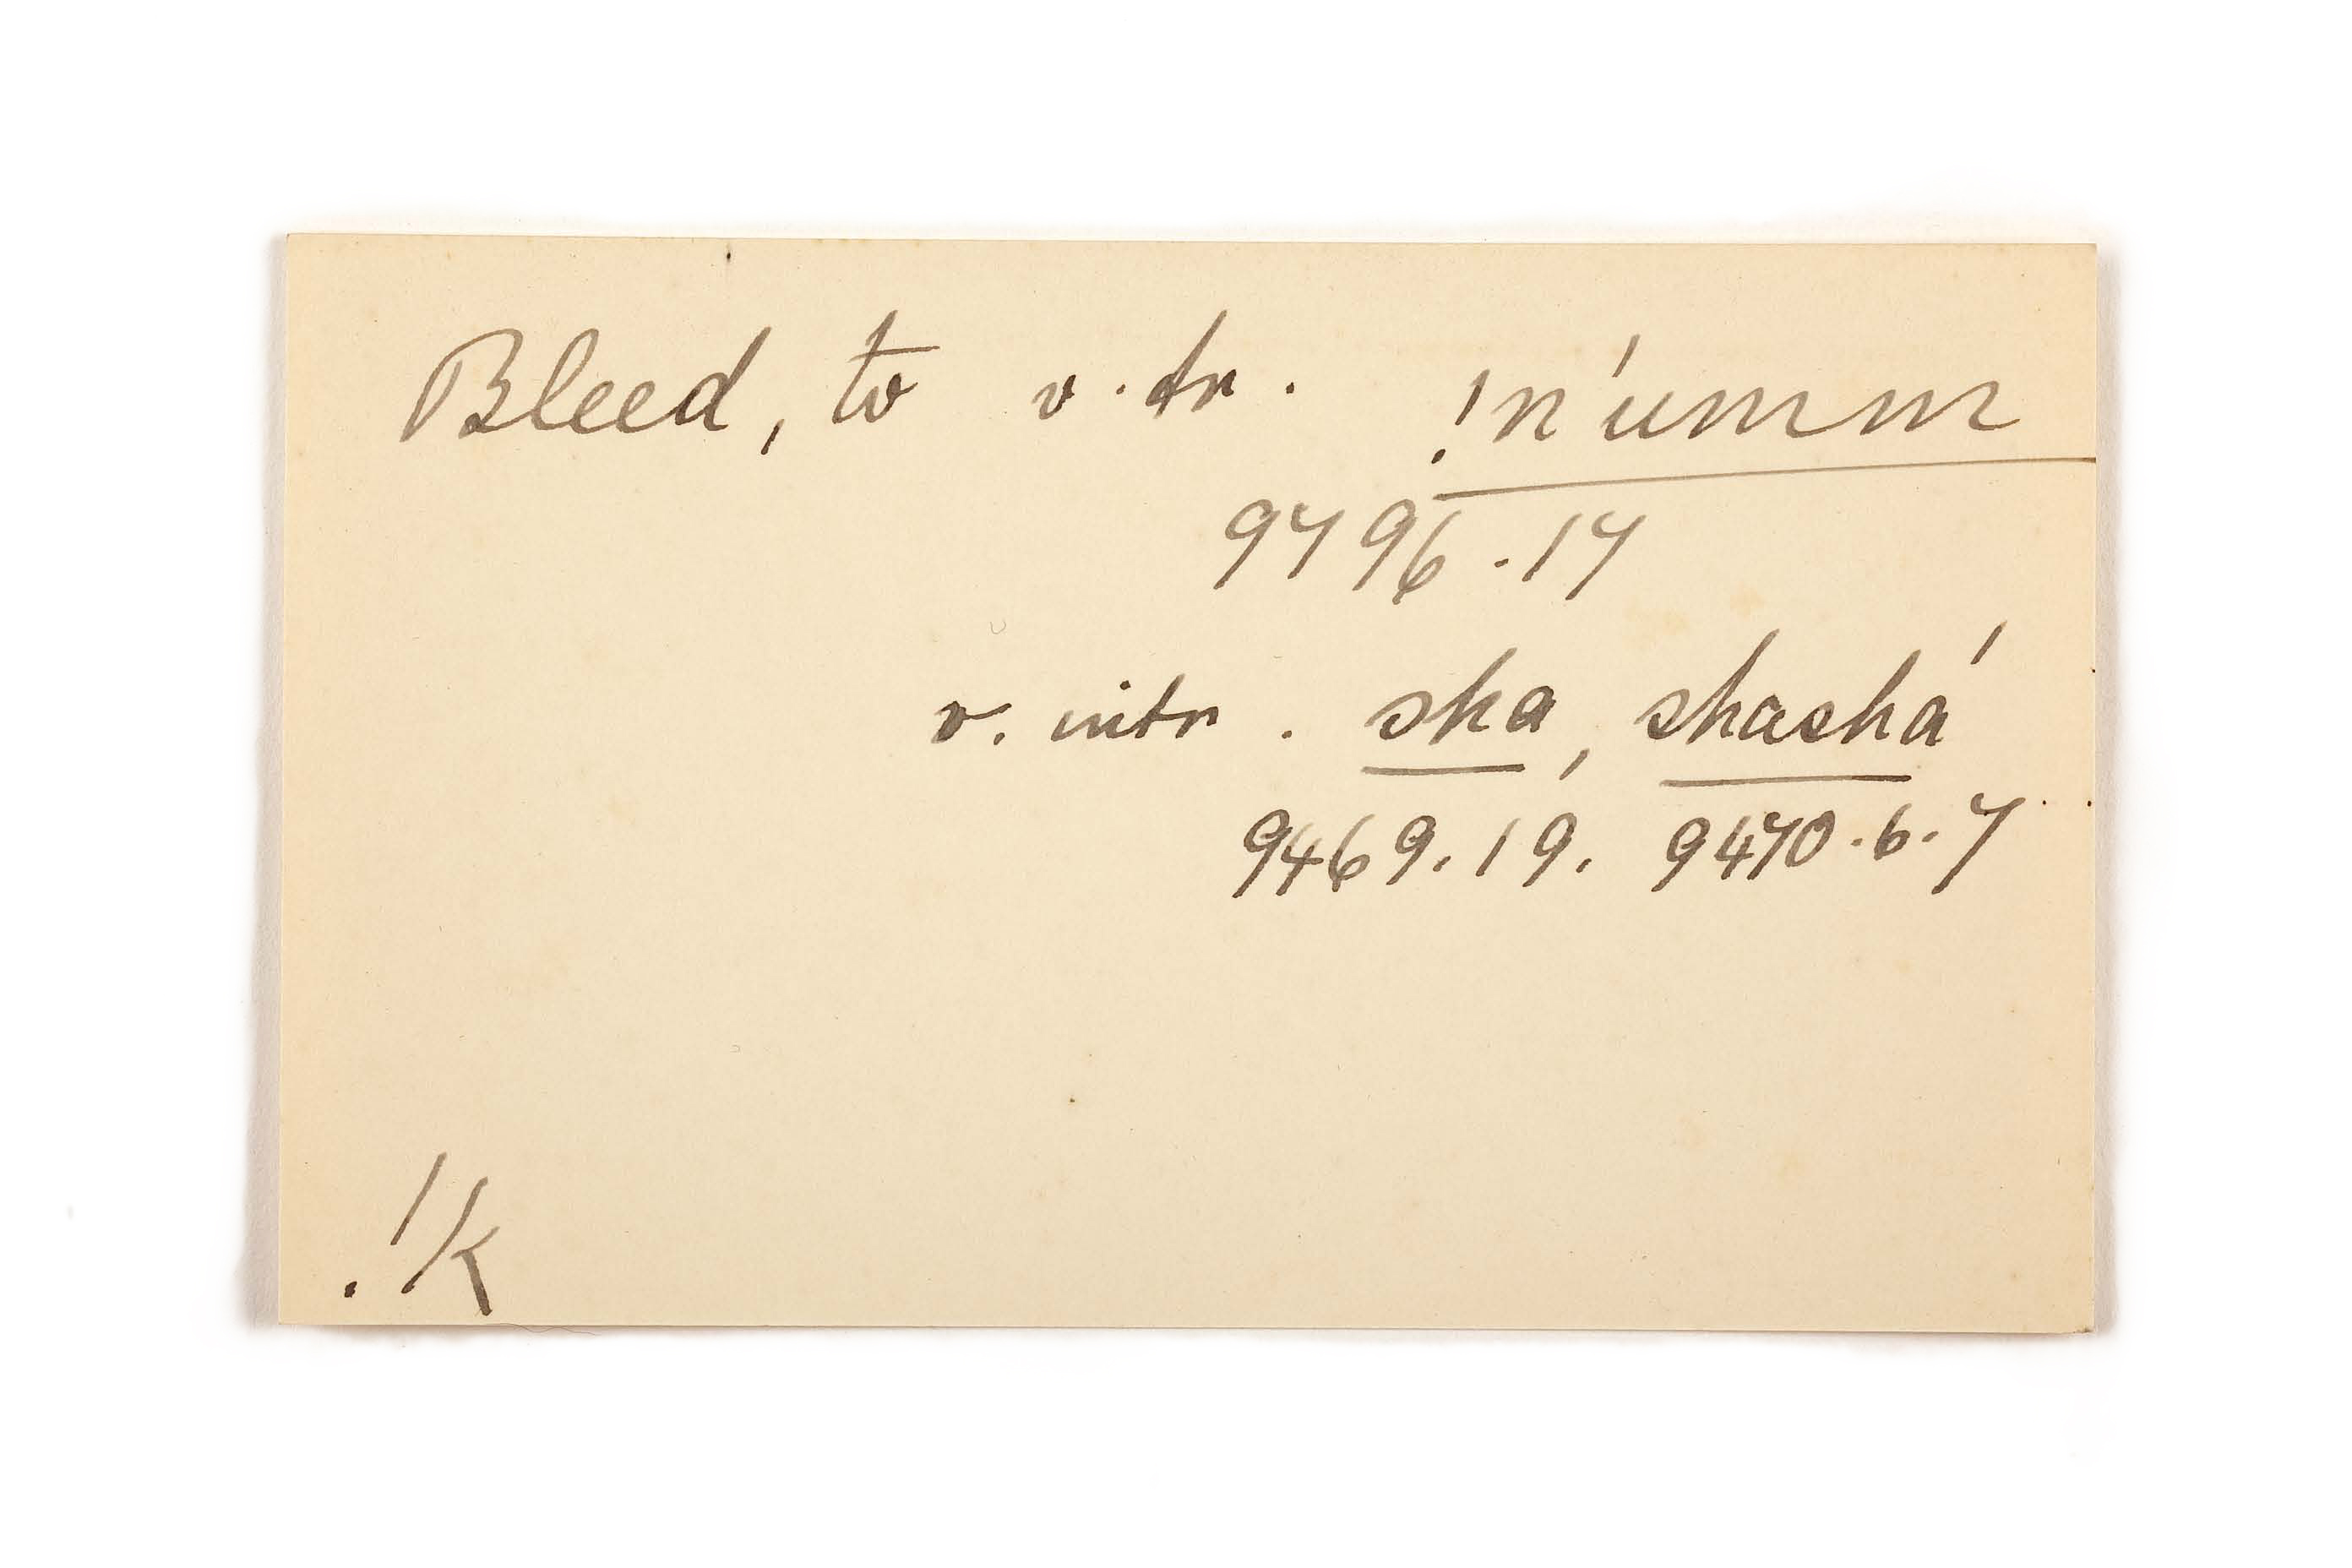 Bleed, to v. tr. !n'umm
9796.17
v. intr. sha, shashá
9469.19. 9470.6.7
!k